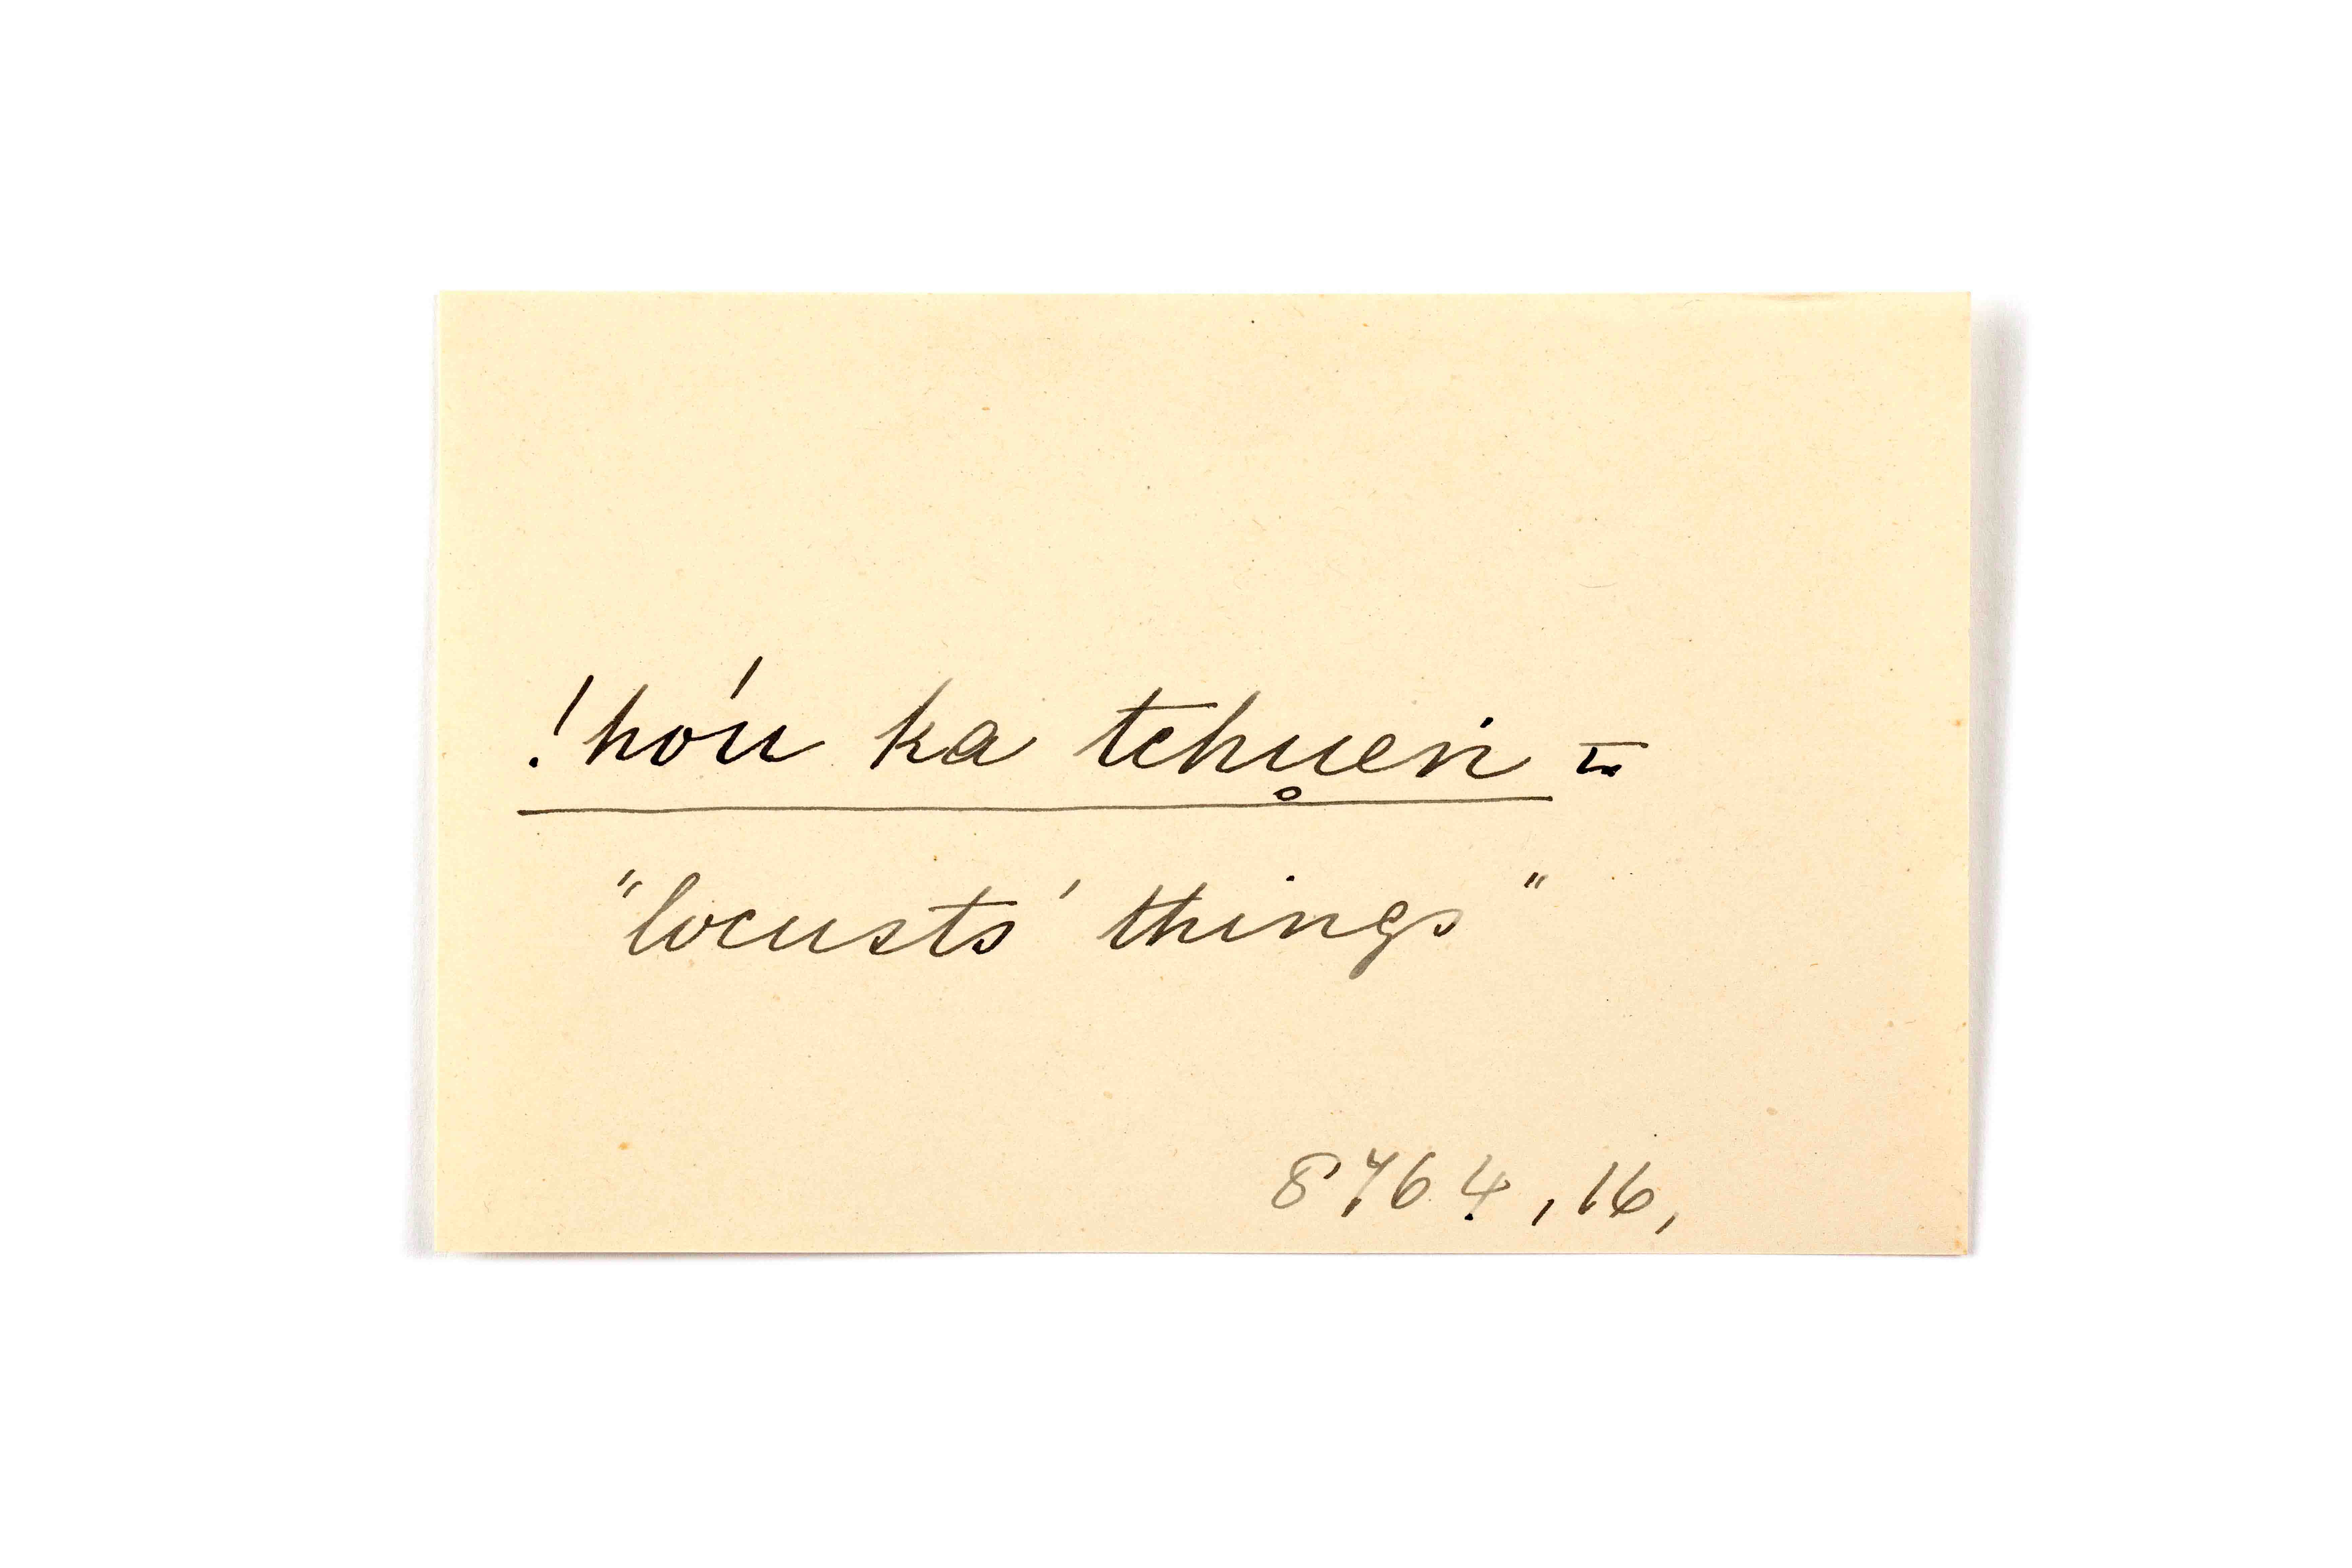 !hóu ka tchu̥eṅ =
"locusts' things"
8764, 16,